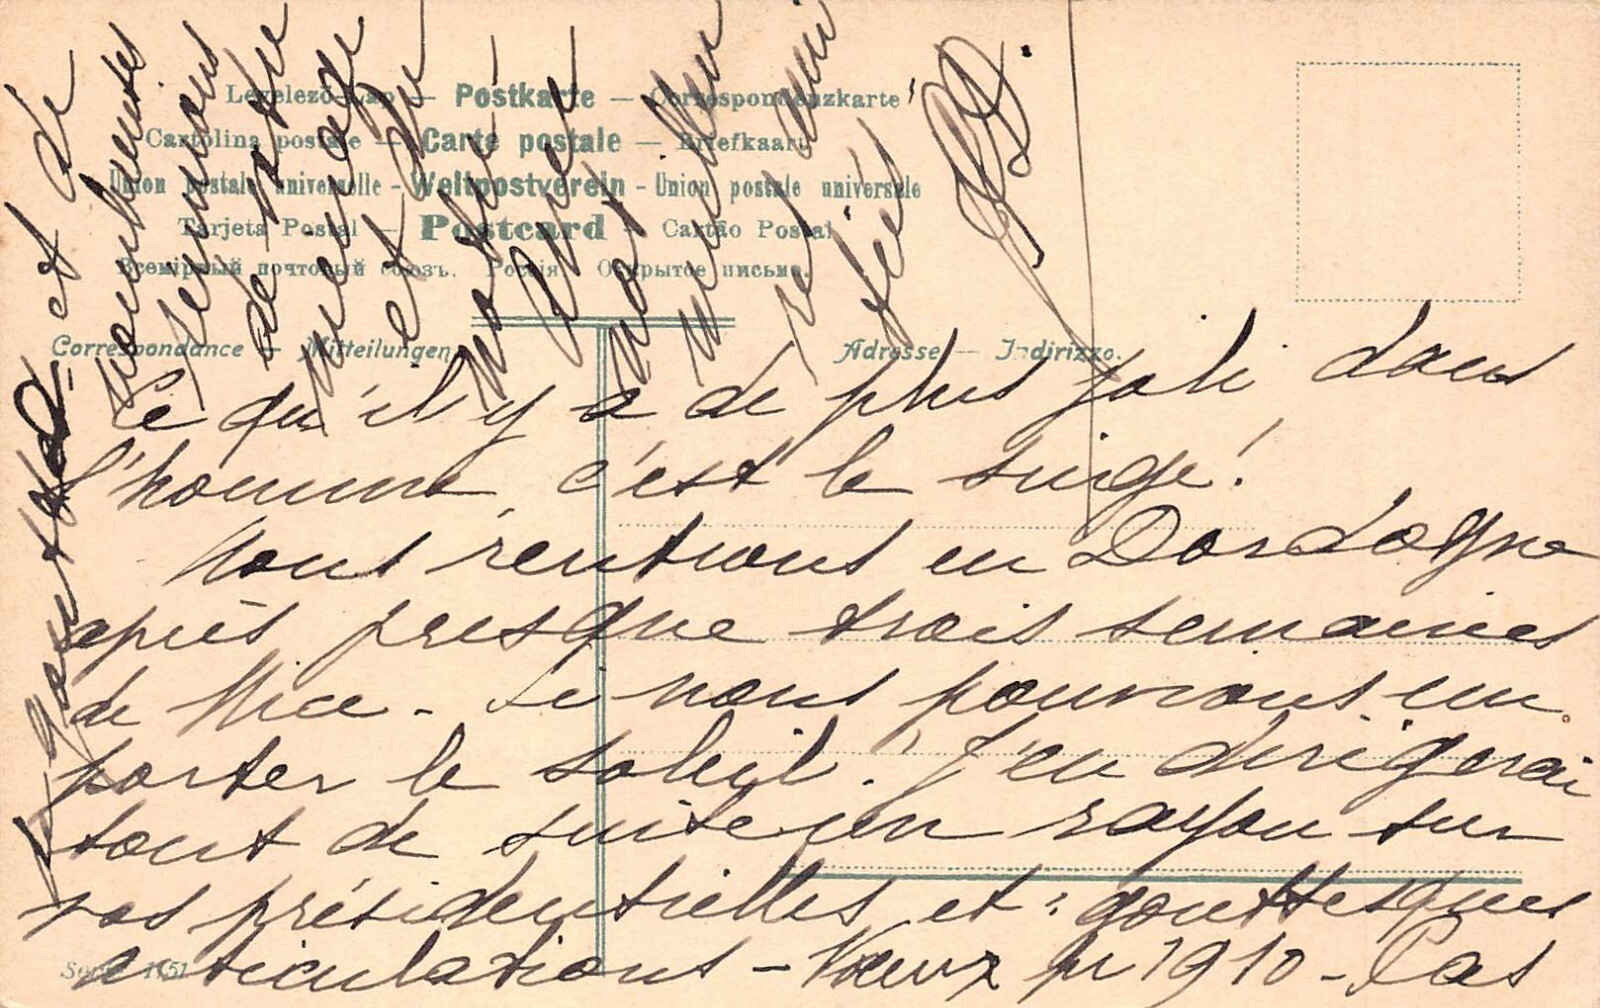 Levelező-Lap — Postkarte — Correspondenzkarte
Cartolina postale — Carte postale — Briefkaart
Union postale universelle - Weltpostverein - Union postale universale
Tarjeta Postal — Postcard — Cartão Postal
Всемірный почтовый союзъ. Россія. Открытое письмо.
Correspondance — Mitteilungen
Adresse — Indirizzo.
Ce qu'il y a de plus joli dans
l'homme, c'est le singe!
Nous rentrons en Dordogne
après presque trois semaines
de Nice - Si nous pouvions em
porter le soleil. J'en dirigerai
tout de suite un rayon sur
vos présidentielles et gouttesques
articulations - Vœux pr 1910 - Pas
et de
de notre
ménage
et du
notre
meilleur
ami
Serie 1151